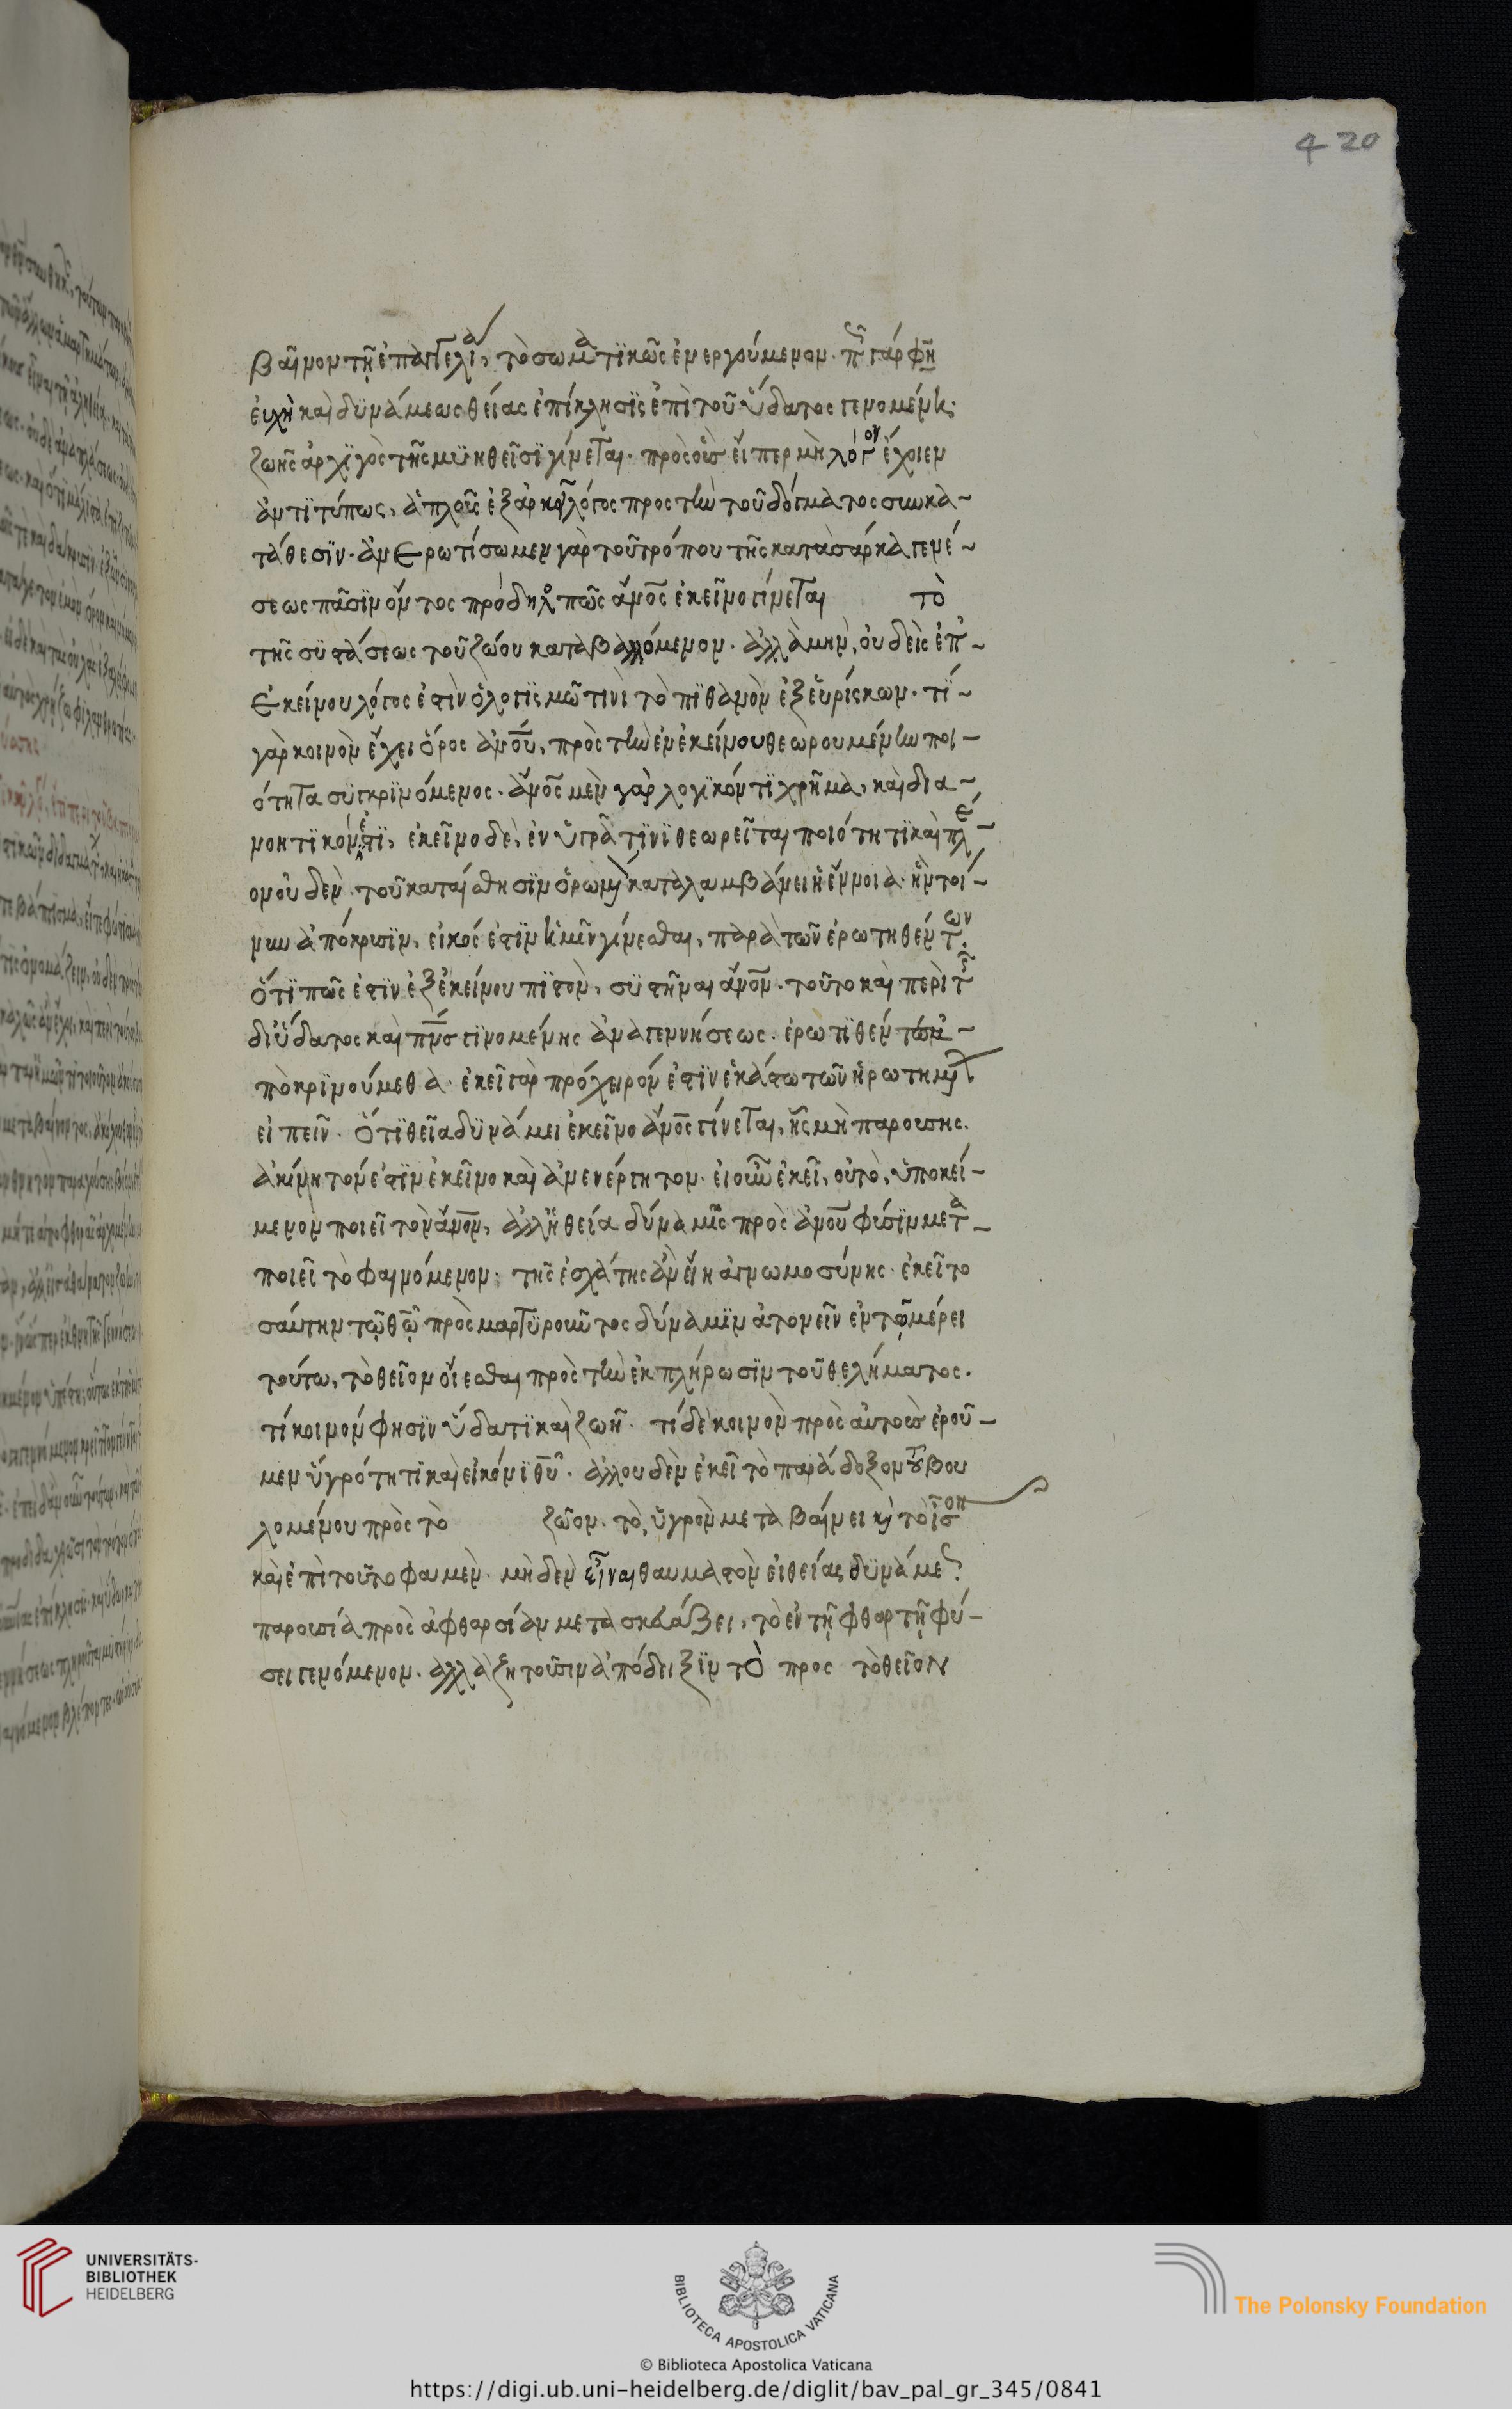 420
βαῖνον τῆ ἐπαγγελία, τὸ σωματϊκῶς ἐνεργούμενον. πῶς γάρ φη
ἐυχὴ καὶ δϋνάμεως θείας ἐπίκλησϊς ἐπὶ τοῦ ὕδατος γενομένη·
ζωῆς ἀρχϊγὸς τῆς μϋηθεῖσϊ γίνεται. πρὸς οὓς εἴπερ μὴ λόγου ἔχοιεν
ἀντϊτύπως, ἁπλοῦς ἐξάρκοῖ λόγος προς τὴν τοῦ δόγματος συνκα-
τάθεσϊν. ἀνερωτίσωμεν γὰρ τοῦ τρόπου τῆς κατὰ σάρκα γενέ-
σεως πᾶσϊν ὄντος προδηλο πῶς ἄνος ἐκεῖνο γίνεται τὸ
τῆς συστάσεως τοῦ ζώου καταβαλλόμενον. ἀλλὰ μὴν, ὀυδεὶς ἐπ-
ἐκείνου λόγος ἐστὶν ὁ λογϊσμῶ τινὶ τὸ πϊθανὸν ἐξευρίσκων. τϊ
γὰρ κοινὸν ἔχει ὅρος ἀνου, πρὸς τὴν ἐν ἐκείνου θεωρουμένην ποι-
ότητα συγκρϊνόμενος. ἄνος μὲν γαρ λογϊκόν τϊ χρῆμα, καὶ δια-
νοητϊκόν ἐστϊ, ἐκεῖνο δὲ, ἐν ὑγρᾶ τϊνϊ θεωρεῖται ποιότητϊ καὶ πλέ-
ον οὐδὲν. τοῦ κατ αίσθησϊν ὁρωμένου καταλαμβάνει ἡ ἔννοια. ἣν τοί-
νυν ἀπόκρισϊν, εἰκός ἐστϊν ἡμῖν γίνεσθαι, παρὰ τῶν ἐρωτηθέντων.
ὅτϊ πῶς ἐστϊν ἐξ ἐκείνου πϊστὸν, συστῆναι ἄνον. τοῦτο καὶ περὶ τῆς
δι ὕδατος καὶ πνς γϊνομένης ἀναγεννήσεως. ἐρωτϊθέντες ἀ-
ποκρϊνούμεθα. ἐκεῖ γὰρ πρόχειρόν ἐστϊν ἑκάστω τῶν ἠρωτημένων
εἰπεῖν. ὅτϊ θεῖα δϋνάμει ἐκεῖνο ἄνος γίνεται, ἧς μὴ παρουσης.
ἀκίνητόν ἐστϊν ἐκεῖνο καὶ ἀνενέργητον. ει οὖν ἐκεῖ, οὐ τὸ, ὑποκεί-
μενον ποιεῖ τὸν ἄνον, ἀλλ ἡ θεία δύναμϊς πρὸς ἀνου φύσϊν μετα-
ποιεῖ τὸ φαινόμενον· τῆς ἐσχάτης ἂν εἴη ἀγνωμοσύνης. ἐκεῖ το
σαύτην τῶ θῶ πρὸς μαρτϋροῦντος δύναμϊν ἀτονεῖν ἐν τῶ μέρει
τούτω, τὸ θεῖον οἴεσθαι πρὸς τὴν ἐκπλήρωσϊν τοῦ θελήματος.
τί κοινόν φησϊν ὕδατϊ καὶ ζωῆ. τί δὲ κοινὸν πρὸς αὐτοὺς ἐροῦ-
μεν ὑγρότητϊ καὶ εἰκόνϊ θυ. ἀλλ ουδὲν ἐκεῖ τὸ παράδοξον τοῦ βου
λομένου πρὸς τὸ ζῶον. τὸ, ὑγρὸν μεταβαίνει
καὶ ἐπὶ τοῦτο φαμεν. μηδὲν εἶναι θαυμαστὸν εἰ θείας δϋνάμεως
παρουσία πρὸς ἀφθαρσίαν μετασκευάζει, τὸ ἐν τῆ φθαρτῆ φύ-
σει γενόμενον. ἀλλὰ ζητοῦσιν ἀπόδειξϊν τὸ προς τὸ θεῖον
UNIVERSITÄTS-
BIBLIOTHEK
HEIDELBERG
BIBLIOTECA APOSTOLICA VATICANA
The Polonsky Foundation
© Biblioteca Apostolica Vaticana
https://digi.ub.uni-heidelberg.de/diglit/bav_pal_gr_345/0841